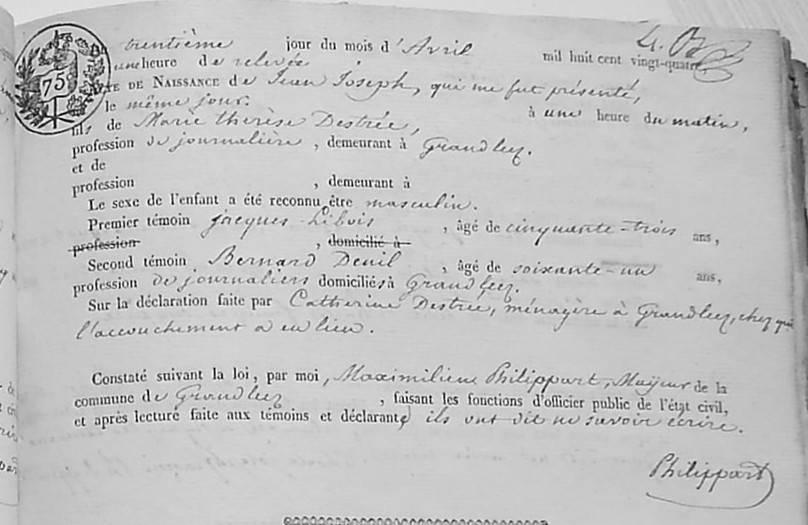 75
Du trentième jour du mois d'Avril mil huit cent vingt-quatre
une heure de relevée
ACTE DE NAISSANCE de Jean Joseph, qui me fut présenté,
né le même jour. à une heure du matin,
fils de Marie thérèse Destrée,
profession de journalière, demeurant à Grandleez.
et de
profession , demeurant à
Le sexe de l'enfant a été reconnu être masculin.
Premier témoin jacques Libois , âgé de cinquante-trois ans,
profession , domicilié à
Second témoin Bernard Denil , âgé de soixante-un ans,
profession de journaliers domiciliés à Grandleez.
Sur la déclaration faite par Catherine Destrée, ménagère à Grandleez, chez qui
l'accouchement a eu lieu.
Constaté suivant la loi, par moi, Maximilien Philippart, Mayeur de la
commune de Grandleez , faisant les fonctions d'officier public de l'état civil,
et après lecture faite aux témoins et déclarante, ils ont dit ne savoir écrire.
Philippart